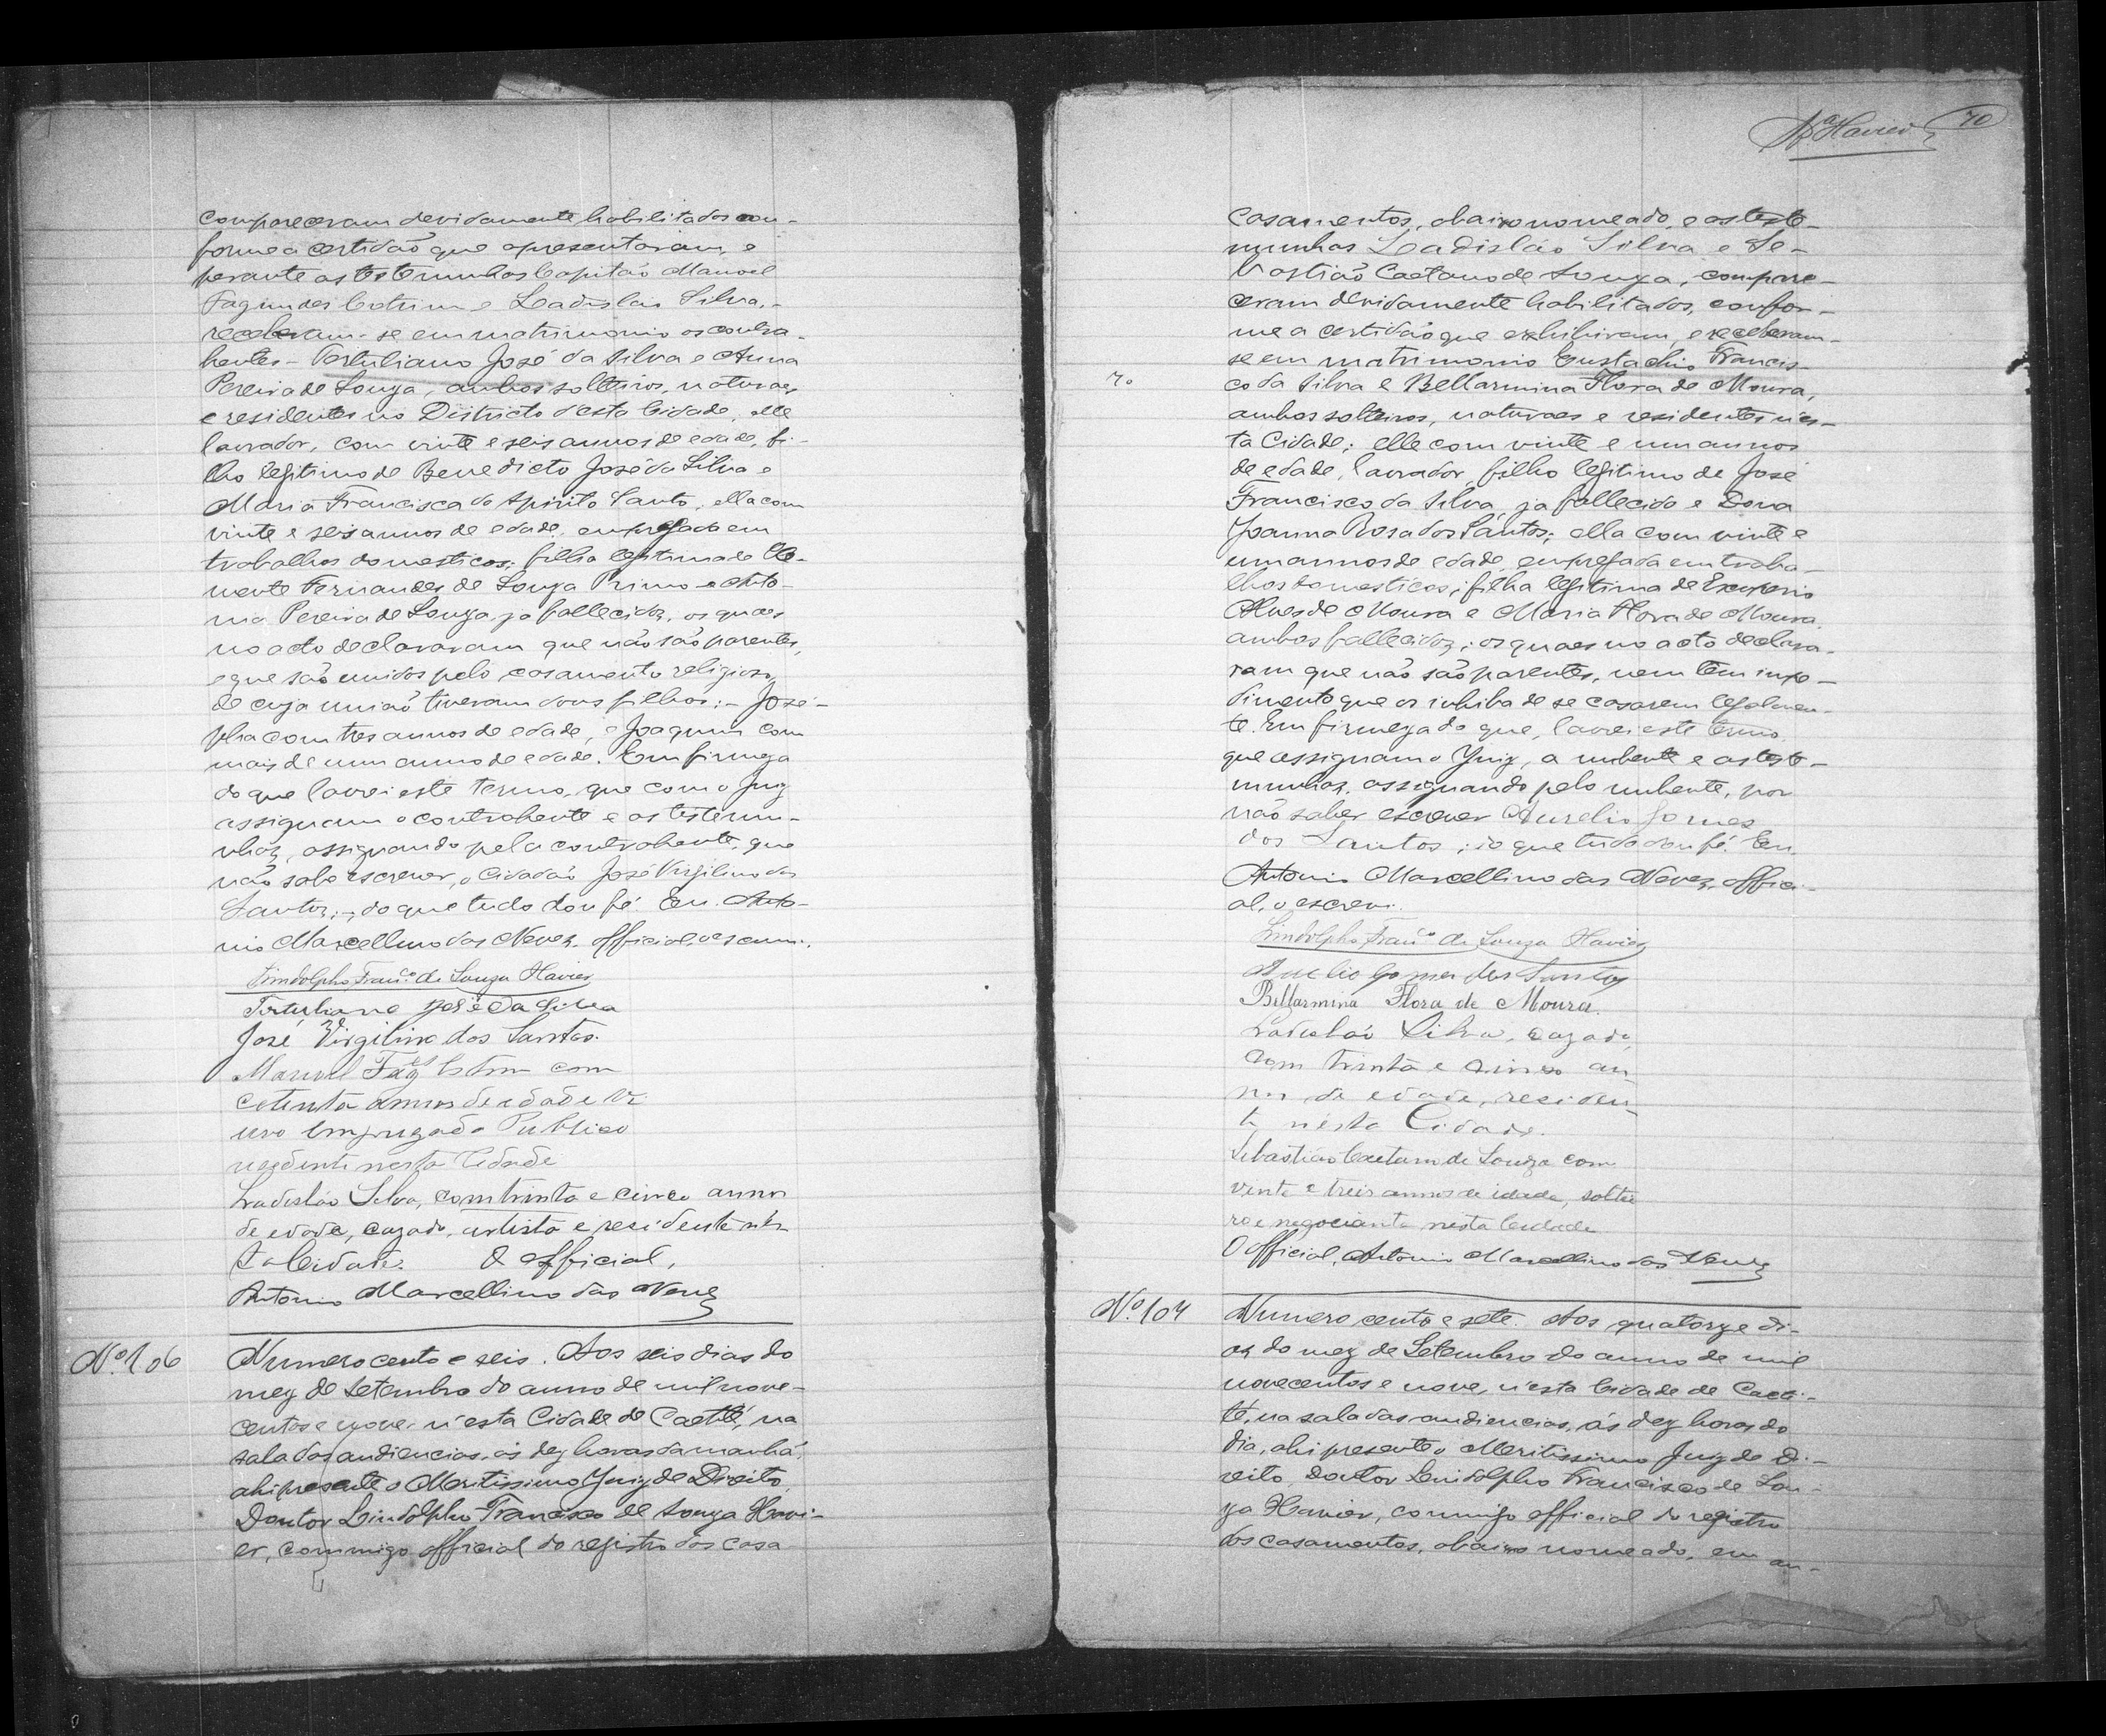 compareceram devidamente habilitados con-
forme a certidão que apresentaram, e
perante as testemunhas Capitão Manoel
Fagundes Cotrim e Ladislau Silva,
receberam-se em matrimonio os contra-
hentes - Tertuliano José da Silva e Anna
Pereira de Souza, ambos solteiros, naturaes
e residentes no Districto d'esta Cidade, elle
lavrador, com vinte e seis annos de edade, fi-
lho legitimo de Benedicto José da Silva e
Maria Francisca do Spirito Santo, ella com
vinte e seis annos de edade, empregada em
trabalhos domesticos, filha legitima de Cle-
mente Fernandes de Souza Primo e Anto-
nia Pereira de Souza, ja fallecidos, os quaes
no acto declararam que não são parentes,
e que são unidos pelo casamento religioso
de cuja união tiveram dous filhos: - José-
pha com tres annos de edade, e Joaquim com
mais de um anno de edade. Em firmeza
do que lavrei este termo, que com o Juiz
assignam o contrahente e as testemu-
nhas, assignando pela contrahente, que
não sabe escrever, o Cidadão José Virgilino dos
Santos; do que tudo dou fé. Eu. Anto-
nio Marcellino das Neves, official, o escrevi.
Lindolpho Franco de Souza Havier
Tertuliano José da Silva
José Virgilino dos Santos.
Manoel Fagdes Cotrim com
cetenta annos de edade Vi
uvo Empregado Publico
rezidente nesta Cidade
Ladisláo Silva, com trinta e cinco annos
de edade, cazado, artista e residente nes
ta Cidade. O official,
Antonio Marcellino das Neves
Nº. 106
Numero cento e seis. Aos seis dias do
mez de Setembro do anno de mil nove-
centos e nove, n'esta Cidade de Caetité, na
sala das audiencias, ás dez horas da manhã,
ahi presente o Meritissimo Juiz de Direito,
Doutor Lindolpho Francisco de Souza Havi-
er, commigo official do registro dos casa
Havier 70
casamentos, abaixo nomeado, e as teste-
munhas Ladisláo Silva e Se-
bastião Caetano de Souza, compare-
ceram devidamente habilitados, confor-
me a certidão que exhibiram, e receberam-
se em matrimonio Eustachio Francis-
co da Silva e Bellarmina Flora de Moura,
ambos solteiros, naturaes e residentes n'es-
ta Cidade; elle com vinte e um annos
de edade, lavrador, filho legitimo de José
Francisco da Silva, ja fallecido e Dona
Joanna Rosa dos Santos; ella com vinte e
um annos de edade, empregada em traba-
lhos domesticos; filha legitima de Exuperio
Alves de Moura e Maria Flora de Moura,
ambos fallecidos; os quaes no acto declara-
ram que não são parentes, nem têm impe-
dimento que os inhiba de se casarem legalmen-
te. Em firmeza do que, lavrei este termo
que assignam o Juiz, a nubente e as teste-
munhas, assignando pelo nubente, por
não saber escrever Aurelio Gomes
dos Santos; do que tudo dou fé. Eu,
Antonio Marcellino das Neves, offici-
al, o escrevi.
Lindolpho Franco de Souza Havier
Aurelio Gomes dos Santos
Bellarmina Flora de Moura.
Ladisláo Silva, cazado,
com trinta e cinco an
nos de edade, residen-
te nesta Cidade.
Sebastião Caetano de Souza com
vinte e treis annos de idade, soltei
ro e negociante nesta Cidade
O official, Antonio Marcellino das Neves
Nº. 107
Numero cento e sete. Aos quatorze di-
as do mez de Setembro do anno de mil
novecentos e nove, n'esta Cidade de Caeti-
té, na sala das audiencias, ás dez horas do
dia, ahi presente o Meritissimo Juiz de Di-
reito Doutor Lindolpho Francisco de Sou-
za Havier, commigo official do registro
dos casamentos, abaixo nomeado, em au-